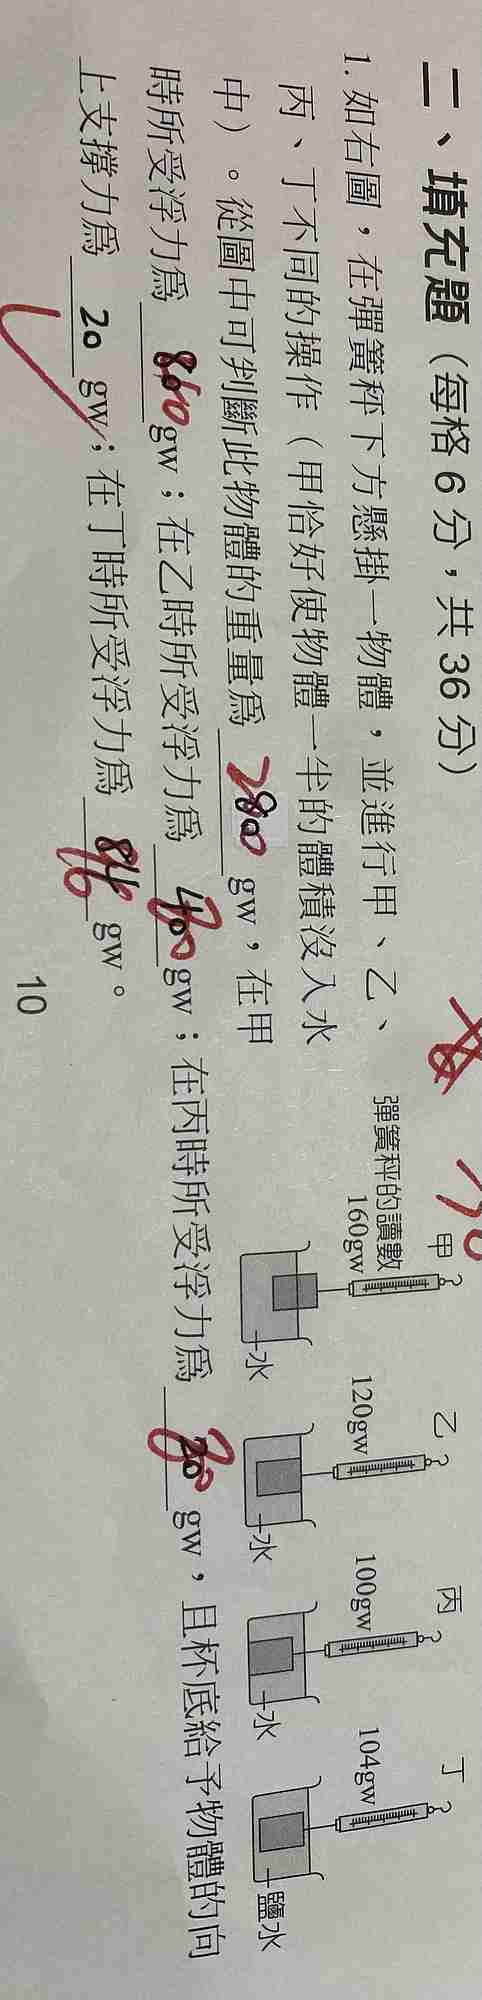 二、填充題（每格 6 分，共 36 分）
1. 如右圖，在彈簧秤下方懸掛一物體，並進行甲、乙、
丙、丁不同的操作（甲恰好使物體一半的體積沒入水
中）。從圖中可判斷此物體的重量為 gw，在甲
時所受浮力為 gw；在乙時所受浮力為 40 gw；在丙時所受浮力為 20 gw，且杯底給予物體的向
上支撐力為 20 gw；在丁時所受浮力為 84 gw。
甲 乙 丙 丁
彈簧秤的讀數
160gw 120gw 100gw 104gw
水 水 水 鹽水
10